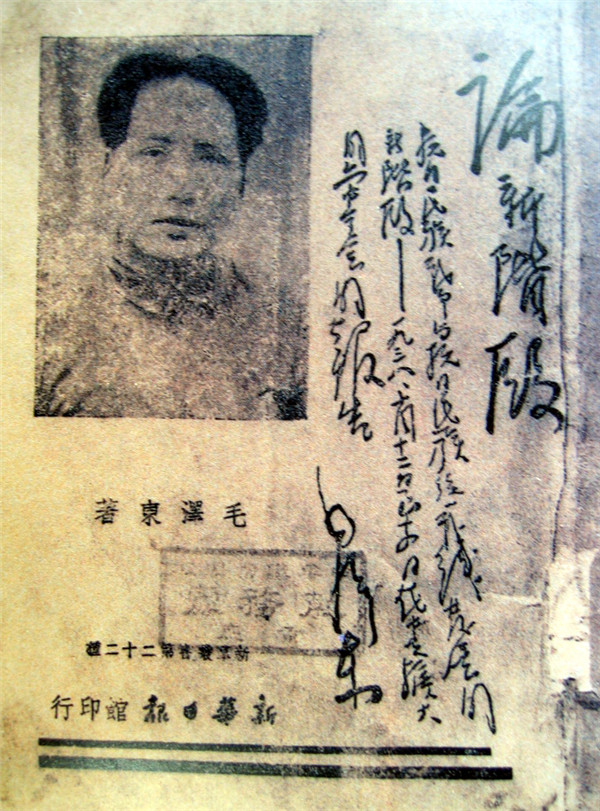 論新階段
抗日民族戰爭與抗日民族統一戰綫發展的
新階段——一九三八、十月十二日至十四日在中共擴大
的六中全會的報告
毛澤東
毛澤東著
叢書第二十二種
新華日報館印行